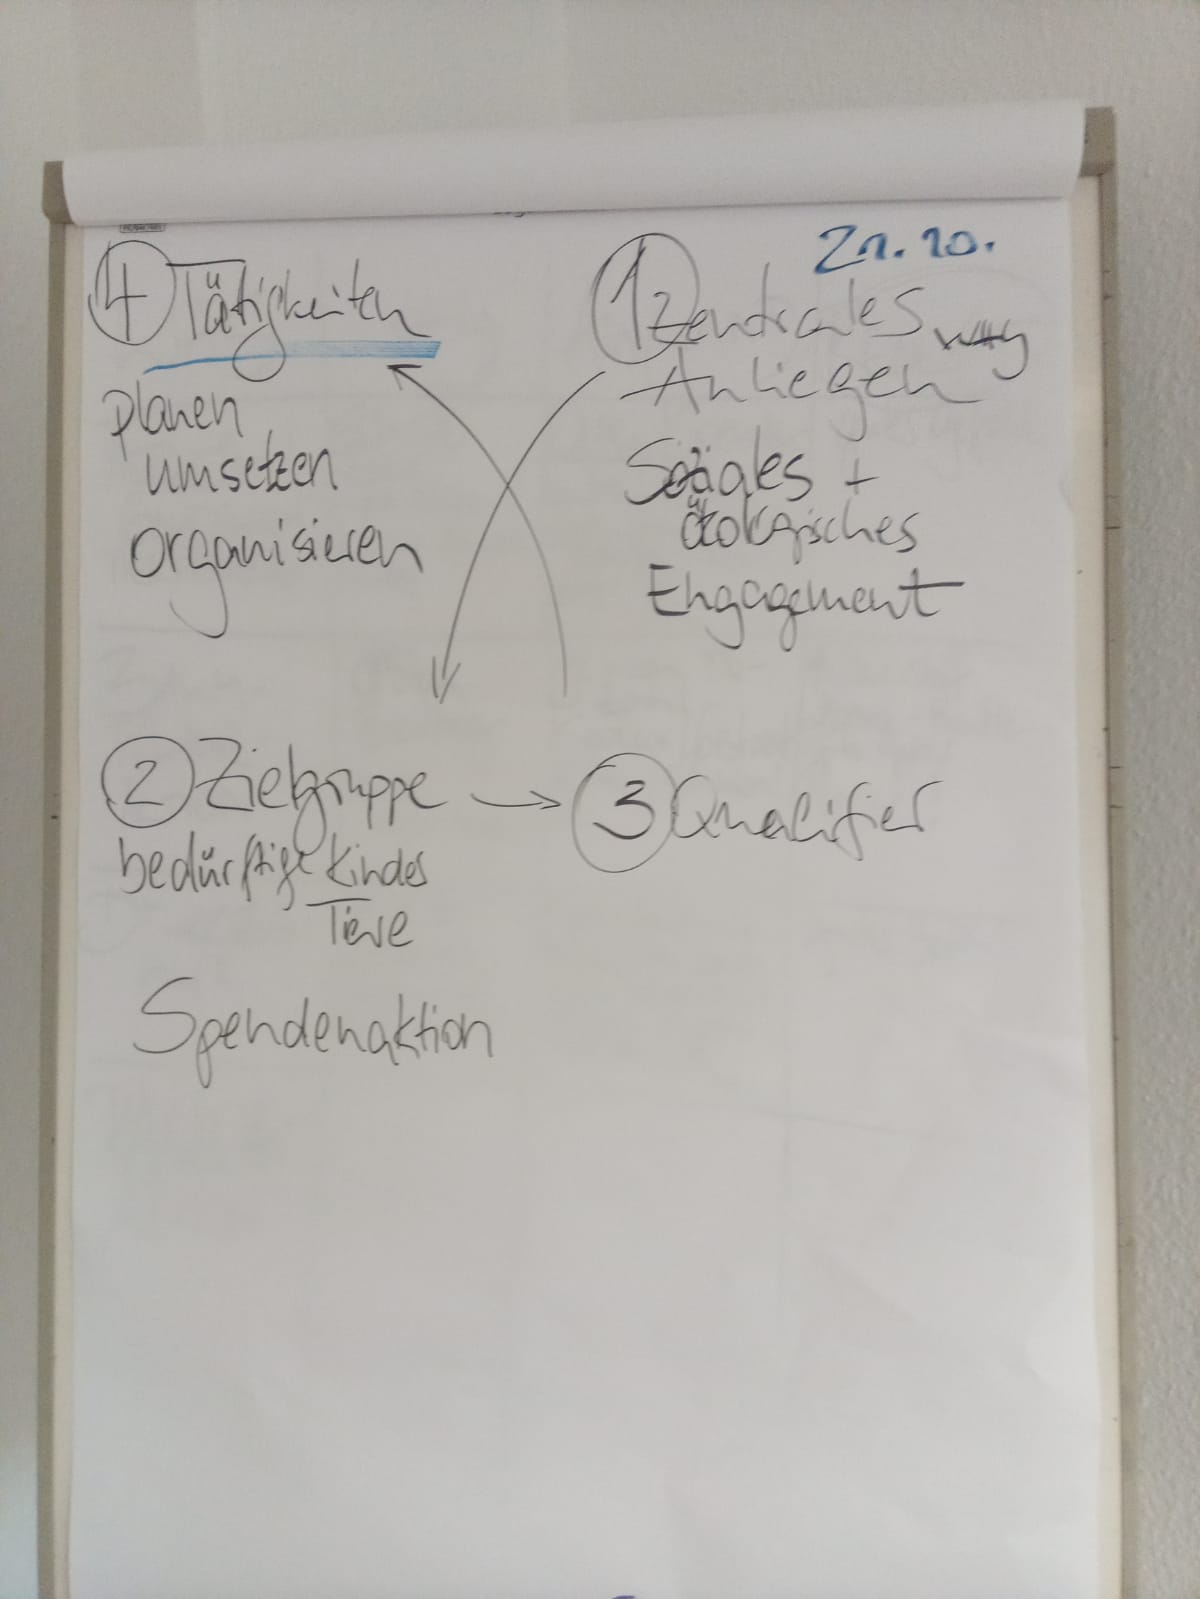 21.10.
④ Tätigkeiten
planen
umsetzen
organisieren
① Zentrales
Anliegen
why
Soziales +
ökologisches
Engagement
② Zielgruppe
bedürftige Kinder
Tiere
Spendenaktion
③ Qualifier